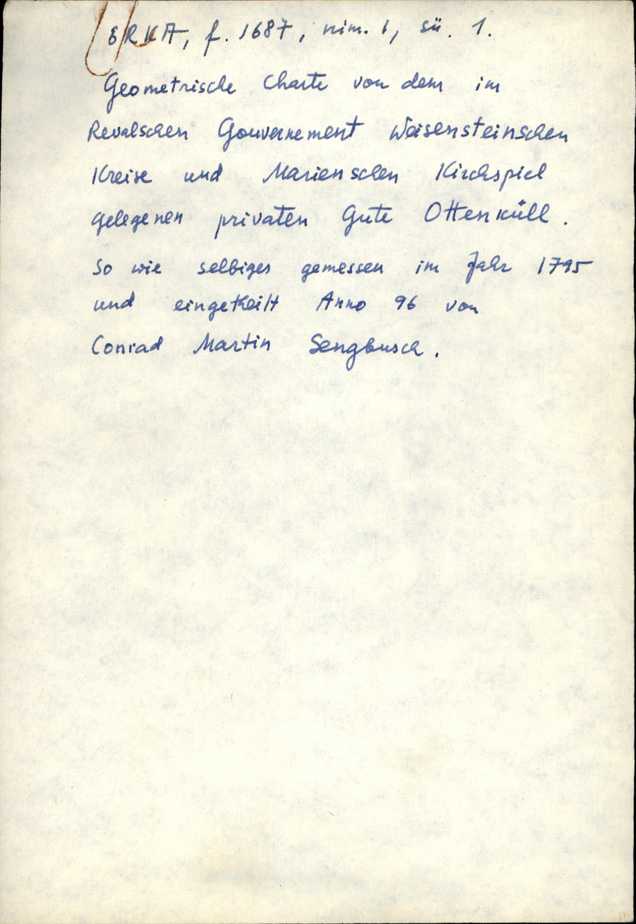 ERKA, f. 1687, nim. 1, sü. 1.
Geometrische Charte von dem im
Revalschen Gouvernement Weisensteinschen
Kreise und Marienschen Kirchspiel
gelegenen privaten Gute Ottenküll.
So wie selbiges gemessen im Jahr 1795
und eingeteilt Anno 96 von
Conrad Martin Sengbusch.